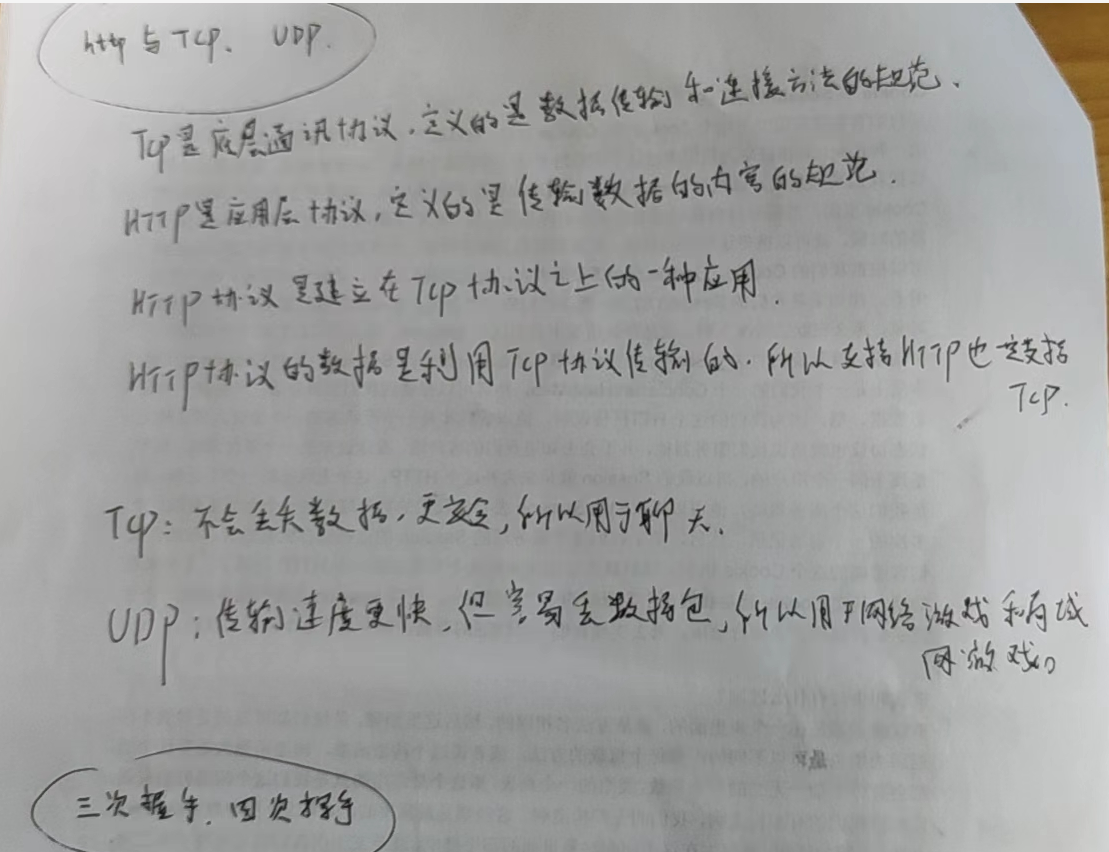 http与TCP、UDP.
Tcp是底层通讯协议,定义的是数据传输和连接方法的规范.
HTTP是应用层协议,定义的是传输数据的内容的规范.
HTTP协议是建立在Tcp协议之上的一种应用.
HTTP协议的数据是利用Tcp协议传输的.所以支持HTTP也一定支持
Tcp.
Tcp:不会丢失数据,更安全,所以用于聊天.
UDP:传输速度更快,但容易丢数据包,所以用于网络游戏和局域
网游戏。
三次握手、四次挥手